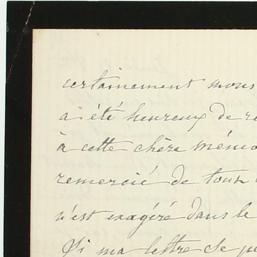 certainement mous
a été heureux de re
à cette chère mémo
remercié de tout
n'est exagéré dans le
Si ma lettre se pu